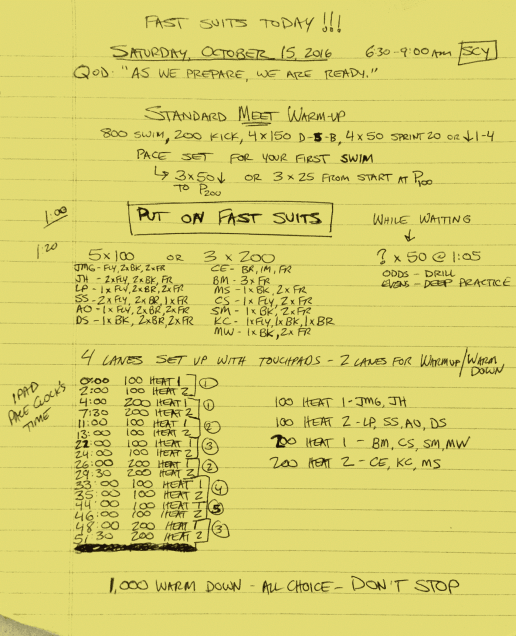 FAST SUITS TODAY !!!
SATURDAY, OCTOBER 15, 2016 630-9:00AM SCY
QOD: "AS WE PREPARE, WE ARE READY."
STANDARD MEET WARM-UP
800 SWIM, 200 KICK, 4x150 D-S-B, 4x50 SPRINT 20 OR ↓1-4
PACE SET FOR YOUR FIRST SWIM
↳ 3x50↓ OR 3x25 FROM START AT P100
TO P200
1:00
PUT ON FAST SUITS
WHILE WAITING
↓
1:20
5x100 OR 3x200
? x 50 @ 1:05
JMG - FLY, 2xBK, 2xFR CE - BR, IM, FR
ODDS - DRILL
JH - 2xFLY, 2xBK, FR BM - 3xFR
EVENS - DEEP PRACTICE
LP - 1xFLY, 2xBR, 2xFR MS - 1xBK, 2xFR
SS - 2xFLY, 2xBR, 1xFR CS - 1xFLY, 2xFR
AO - 1xFLY, 2xBR, 2xFR SM - 1xBK, 2xFR
DS - 1xBK, 2xBR, 2xFR KC - 1xFLY, 1xBK, 1xBR
MW - 1xBK, 2xFR
4 LANES SET UP WITH TOUCHPADS - 2 LANES FOR WARMUP/WARM DOWN
IPAD
PACE CLOCK'S
TIME
0:00 100 HEAT 1 ①
2:00 100 HEAT 2
4:00 200 HEAT 1 ①
7:30 200 HEAT 2
11:00 100 HEAT 1 ②
13:00 100 HEAT 2
22:00 100 HEAT 1 ③
24:00 100 HEAT 2
26:00 200 HEAT 1 ②
29:30 200 HEAT 2
33:00 100 HEAT 1 ④
35:00 100 HEAT 2
44:00 100 HEAT 1 ⑤
46:00 100 HEAT 2
48:00 200 HEAT 1 ③
51:30 200 HEAT 2
100 HEAT 1 - JMG, JH
100 HEAT 2 - LP, SS, AO, DS
200 HEAT 1 - BM, CS, SM, MW
200 HEAT 2 - CE, KC, MS
1,000 WARM DOWN - ALL CHOICE - DON'T STOP